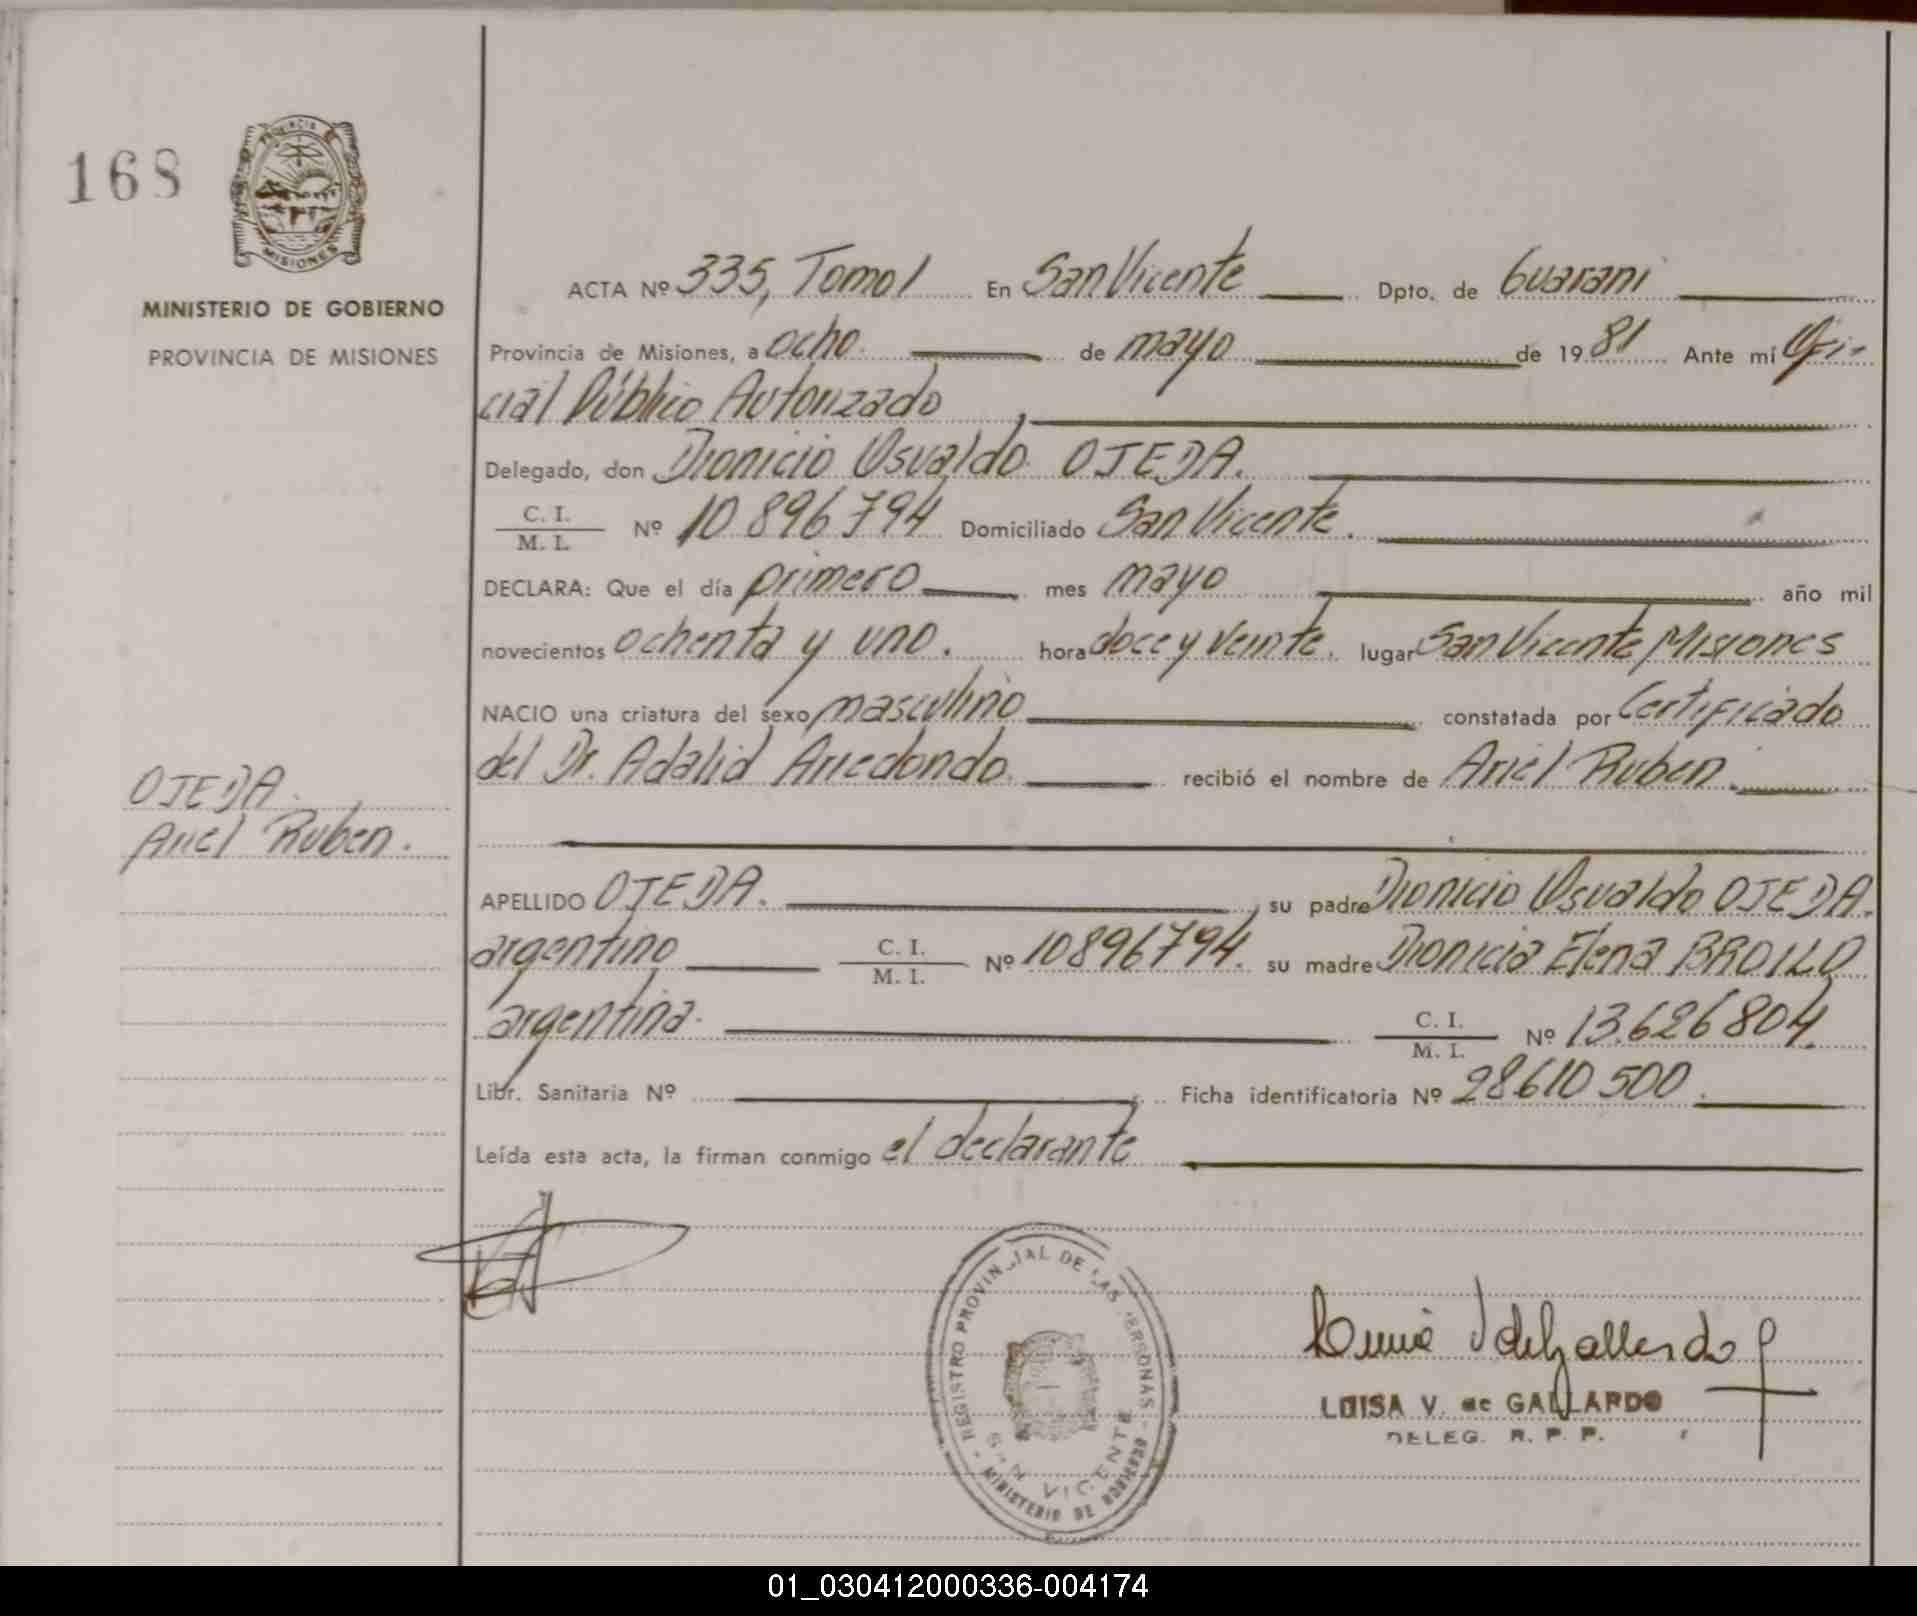 168
PROVINCIA DE
MISIONES
MINISTERIO DE GOBIERNO
PROVINCIA DE MISIONES
ACTA Nº 335, Tomo I En San Vicente Dpto. de Guarani
Provincia de Misiones, a ocho de mayo de 1981 Ante mí Ofi-
cial Público Autorizado,
Delegado, don Dionicio Osvaldo OJEDA.
C. I. / M. I. Nº 10.896.794 Domiciliado San Vicente.
DECLARA: Que el día primero mes mayo año mil
novecientos ochenta y uno. hora doce y veinte. lugar San Vicente Misiones
NACIO una criatura del sexo masculino constatada por Certificado
del Dr. Adalid Arredondo. recibió el nombre de Ariel Ruben.
OJEDA.
Ariel Ruben.
APELLIDO OJEDA. su padre Dionicio Osvaldo OJEDA.
argentino C. I. / M. I. Nº 10896794. su madre Dionicia Elena BROILO
argentina. C. I. / M. I. Nº 13.626804.
Libr. Sanitaria Nº Ficha identificatoria Nº 28610500
Leída esta acta, la firman conmigo el declarante
REGISTRO PROVINCIAL DE LAS PERSONAS
SAN VICENTE
MINISTERIO DE GOBIERNO
LUISA V. de GALLARDO
DELEG. R. P. P.
01_030412000336-004174